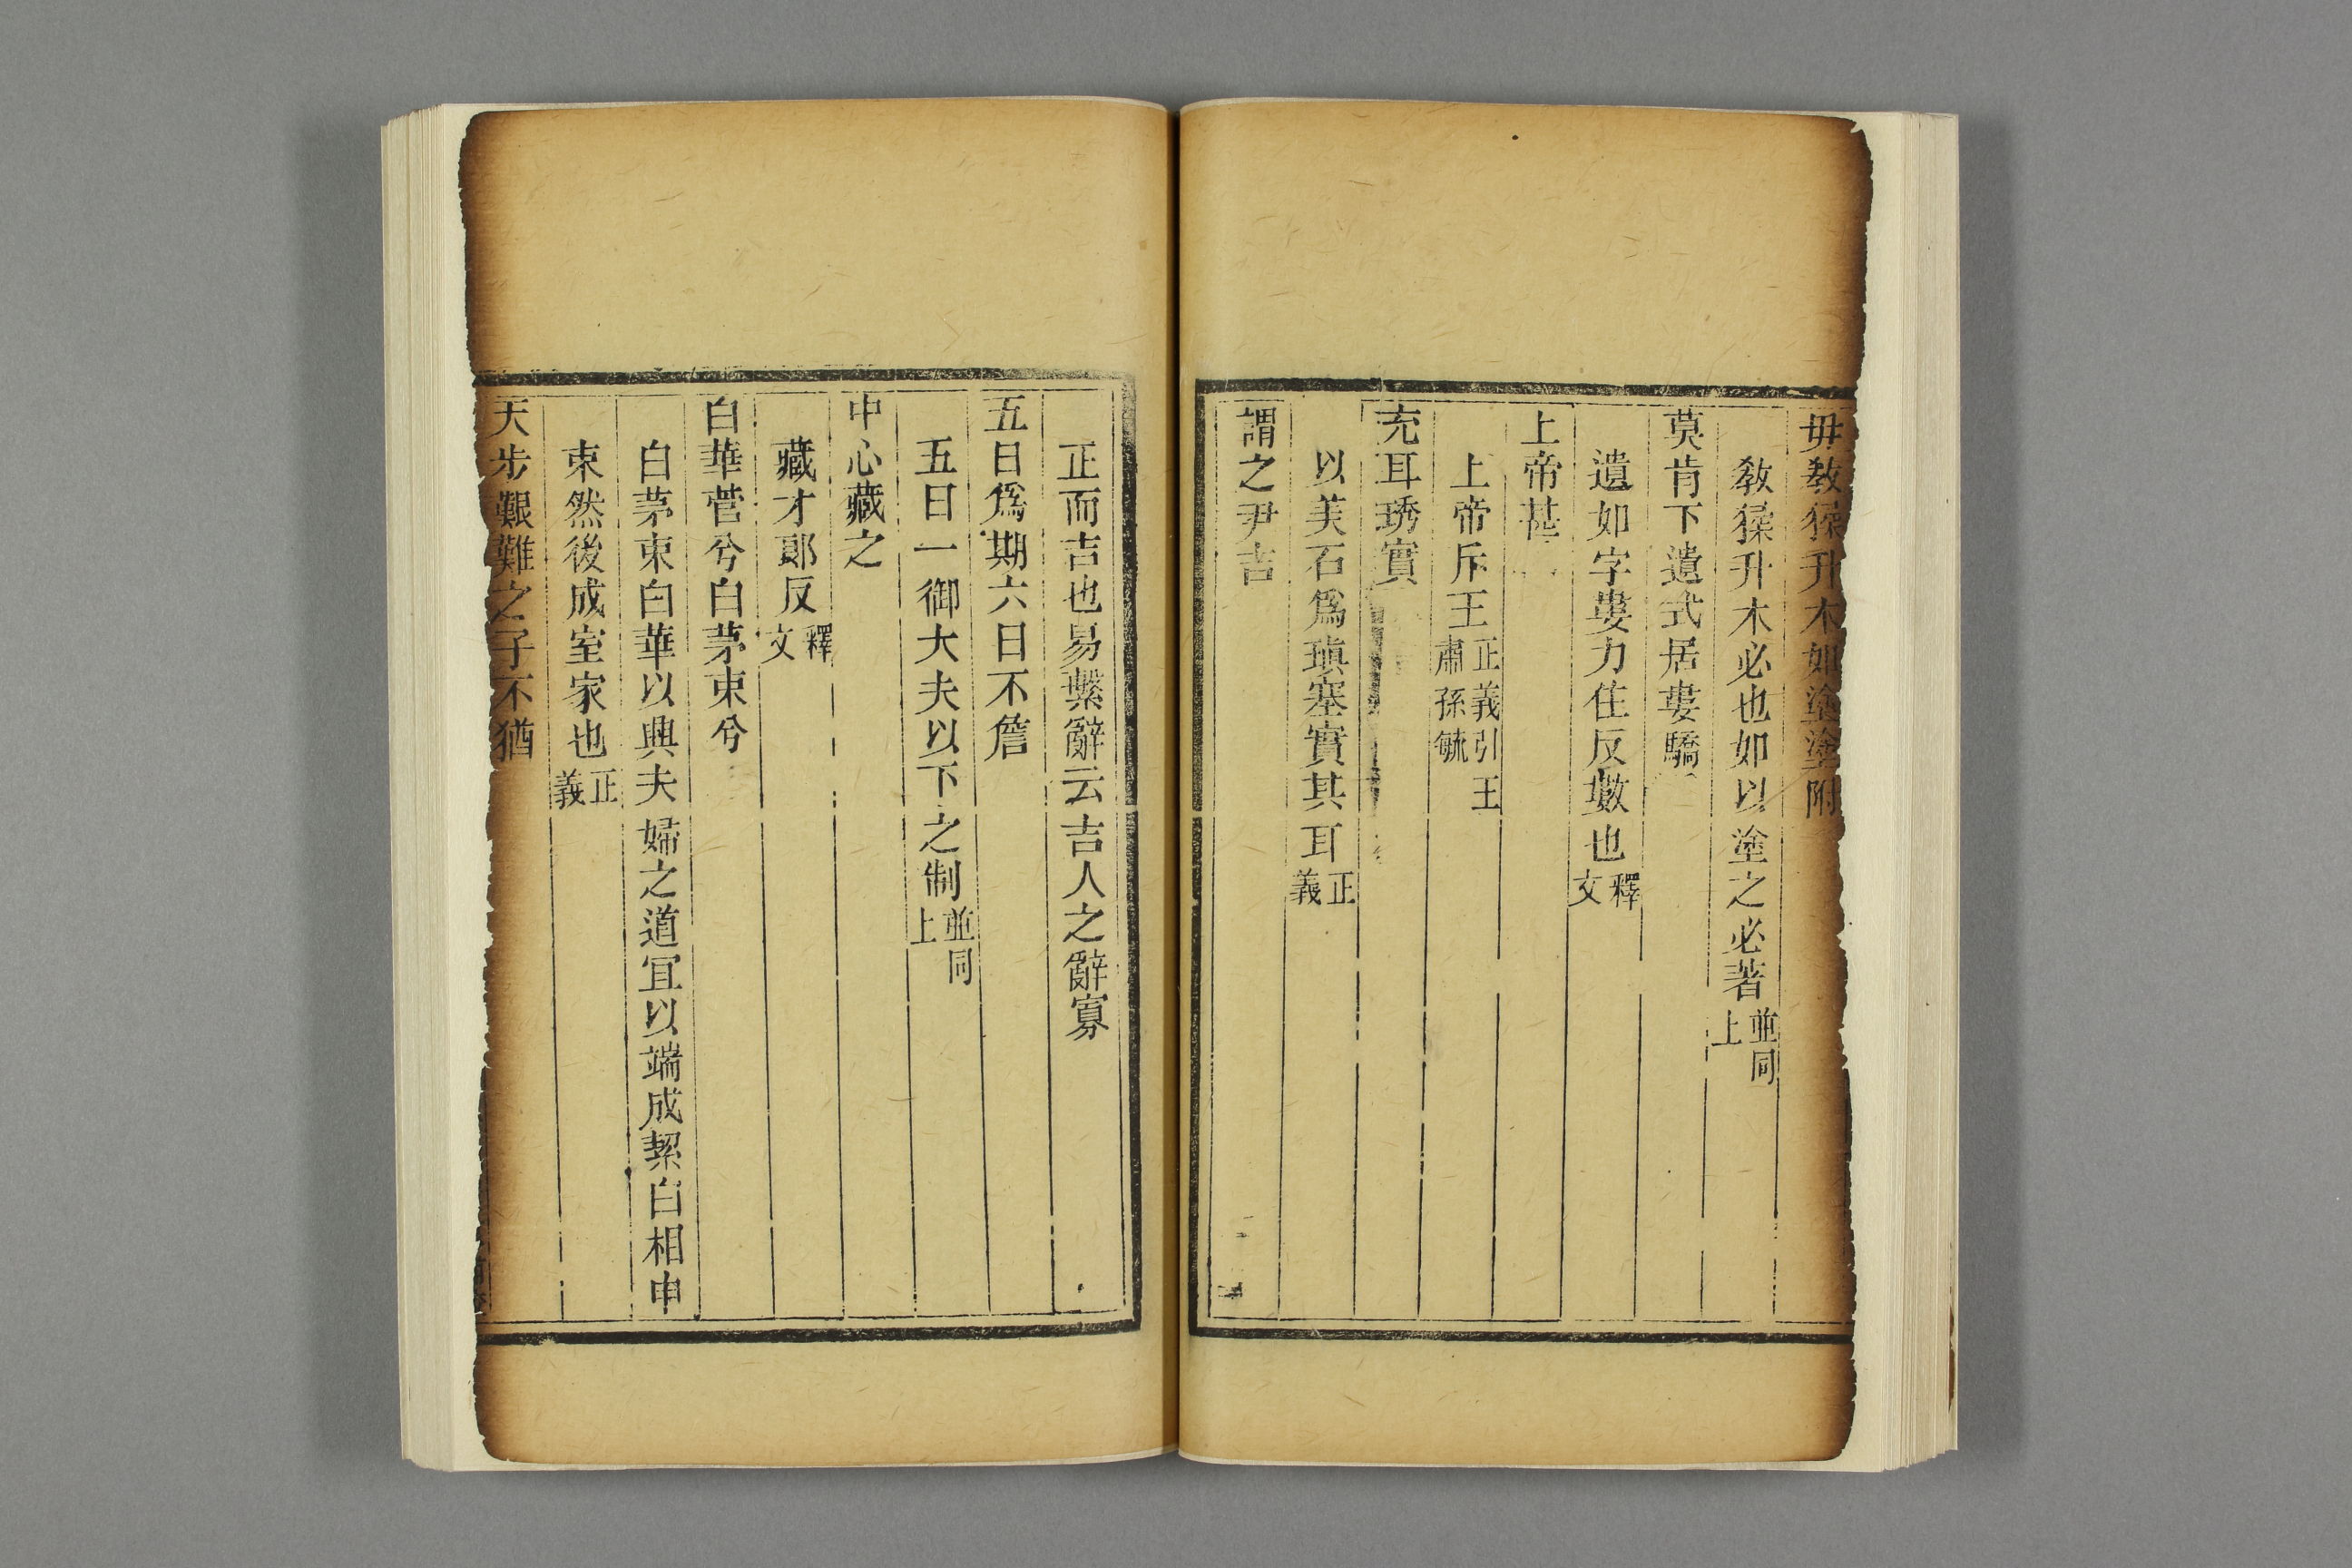 毋敎猱升木如塗塗附
敎猱升木必也如以塗之必著並同上
莫肯下遺式居婁驕
遺如字婁力住反數也釋文
上帝甚
上帝斥王正義引王肅孫毓
充耳琇實
以美石爲瑱塞實其耳正義
謂之尹吉
正而吉也易繫辭云吉人之辭寡
五日爲期六日不詹
五日一御大夫以下之制並同上
中心藏之
藏才郞反釋文
白華菅兮白茅束兮
白茅束白華以興夫婦之道宜以端成絜白相申
束然後成室家也正義
天步艱難之子不猶